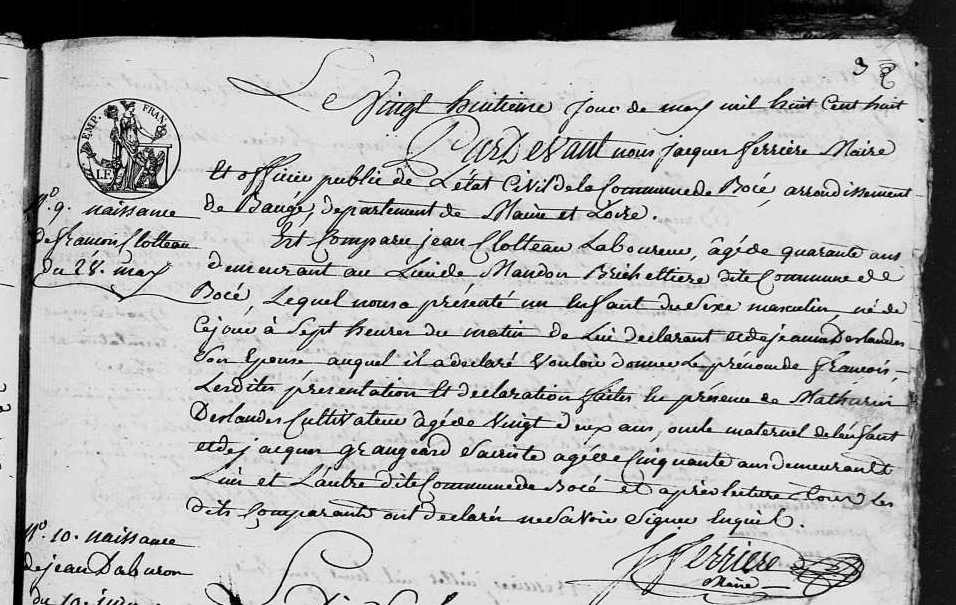 3
Le Vingt huitieme jour de may mil huit Cent huit
Pardevant nous jacques ferrière Maire
Et officier public de L'état Civil de la Commune de Bocé, arrondissement
de Baugé, departement de Maine et Loire.
EMP. FRAN.
N.º 9. naissance
de francois Clotteau
du 28. may
Est Comparu jean Clotteau Laboureur, âgé de quarante ans
demeurant au Lieu de dite Commune de
Bocé, Lequel nous a présenté un Enfant du Sexe masculin, né de
Cejour à Sept heures du matin de Lui declarant et de jeanne Deslandes
Son Epouse auquel il a déclaré Vouloir donner Le prénom de francois,
Lesdites présentation Et déclaration faites En présence de Mathurin
Deslandes Cultivateur agé de Vingt ans, oncle maternel de l'enfant
et de jacques grangeard Sacriste agé de Cinquante ans demeurant
L'un et L'autre dite Commune de Bocé et après lecture Les
dits Comparants ont declaré ne Savoir Signer
ferriere
Maire
N.º 10. naissance
de jean Daburon
du 10. juin